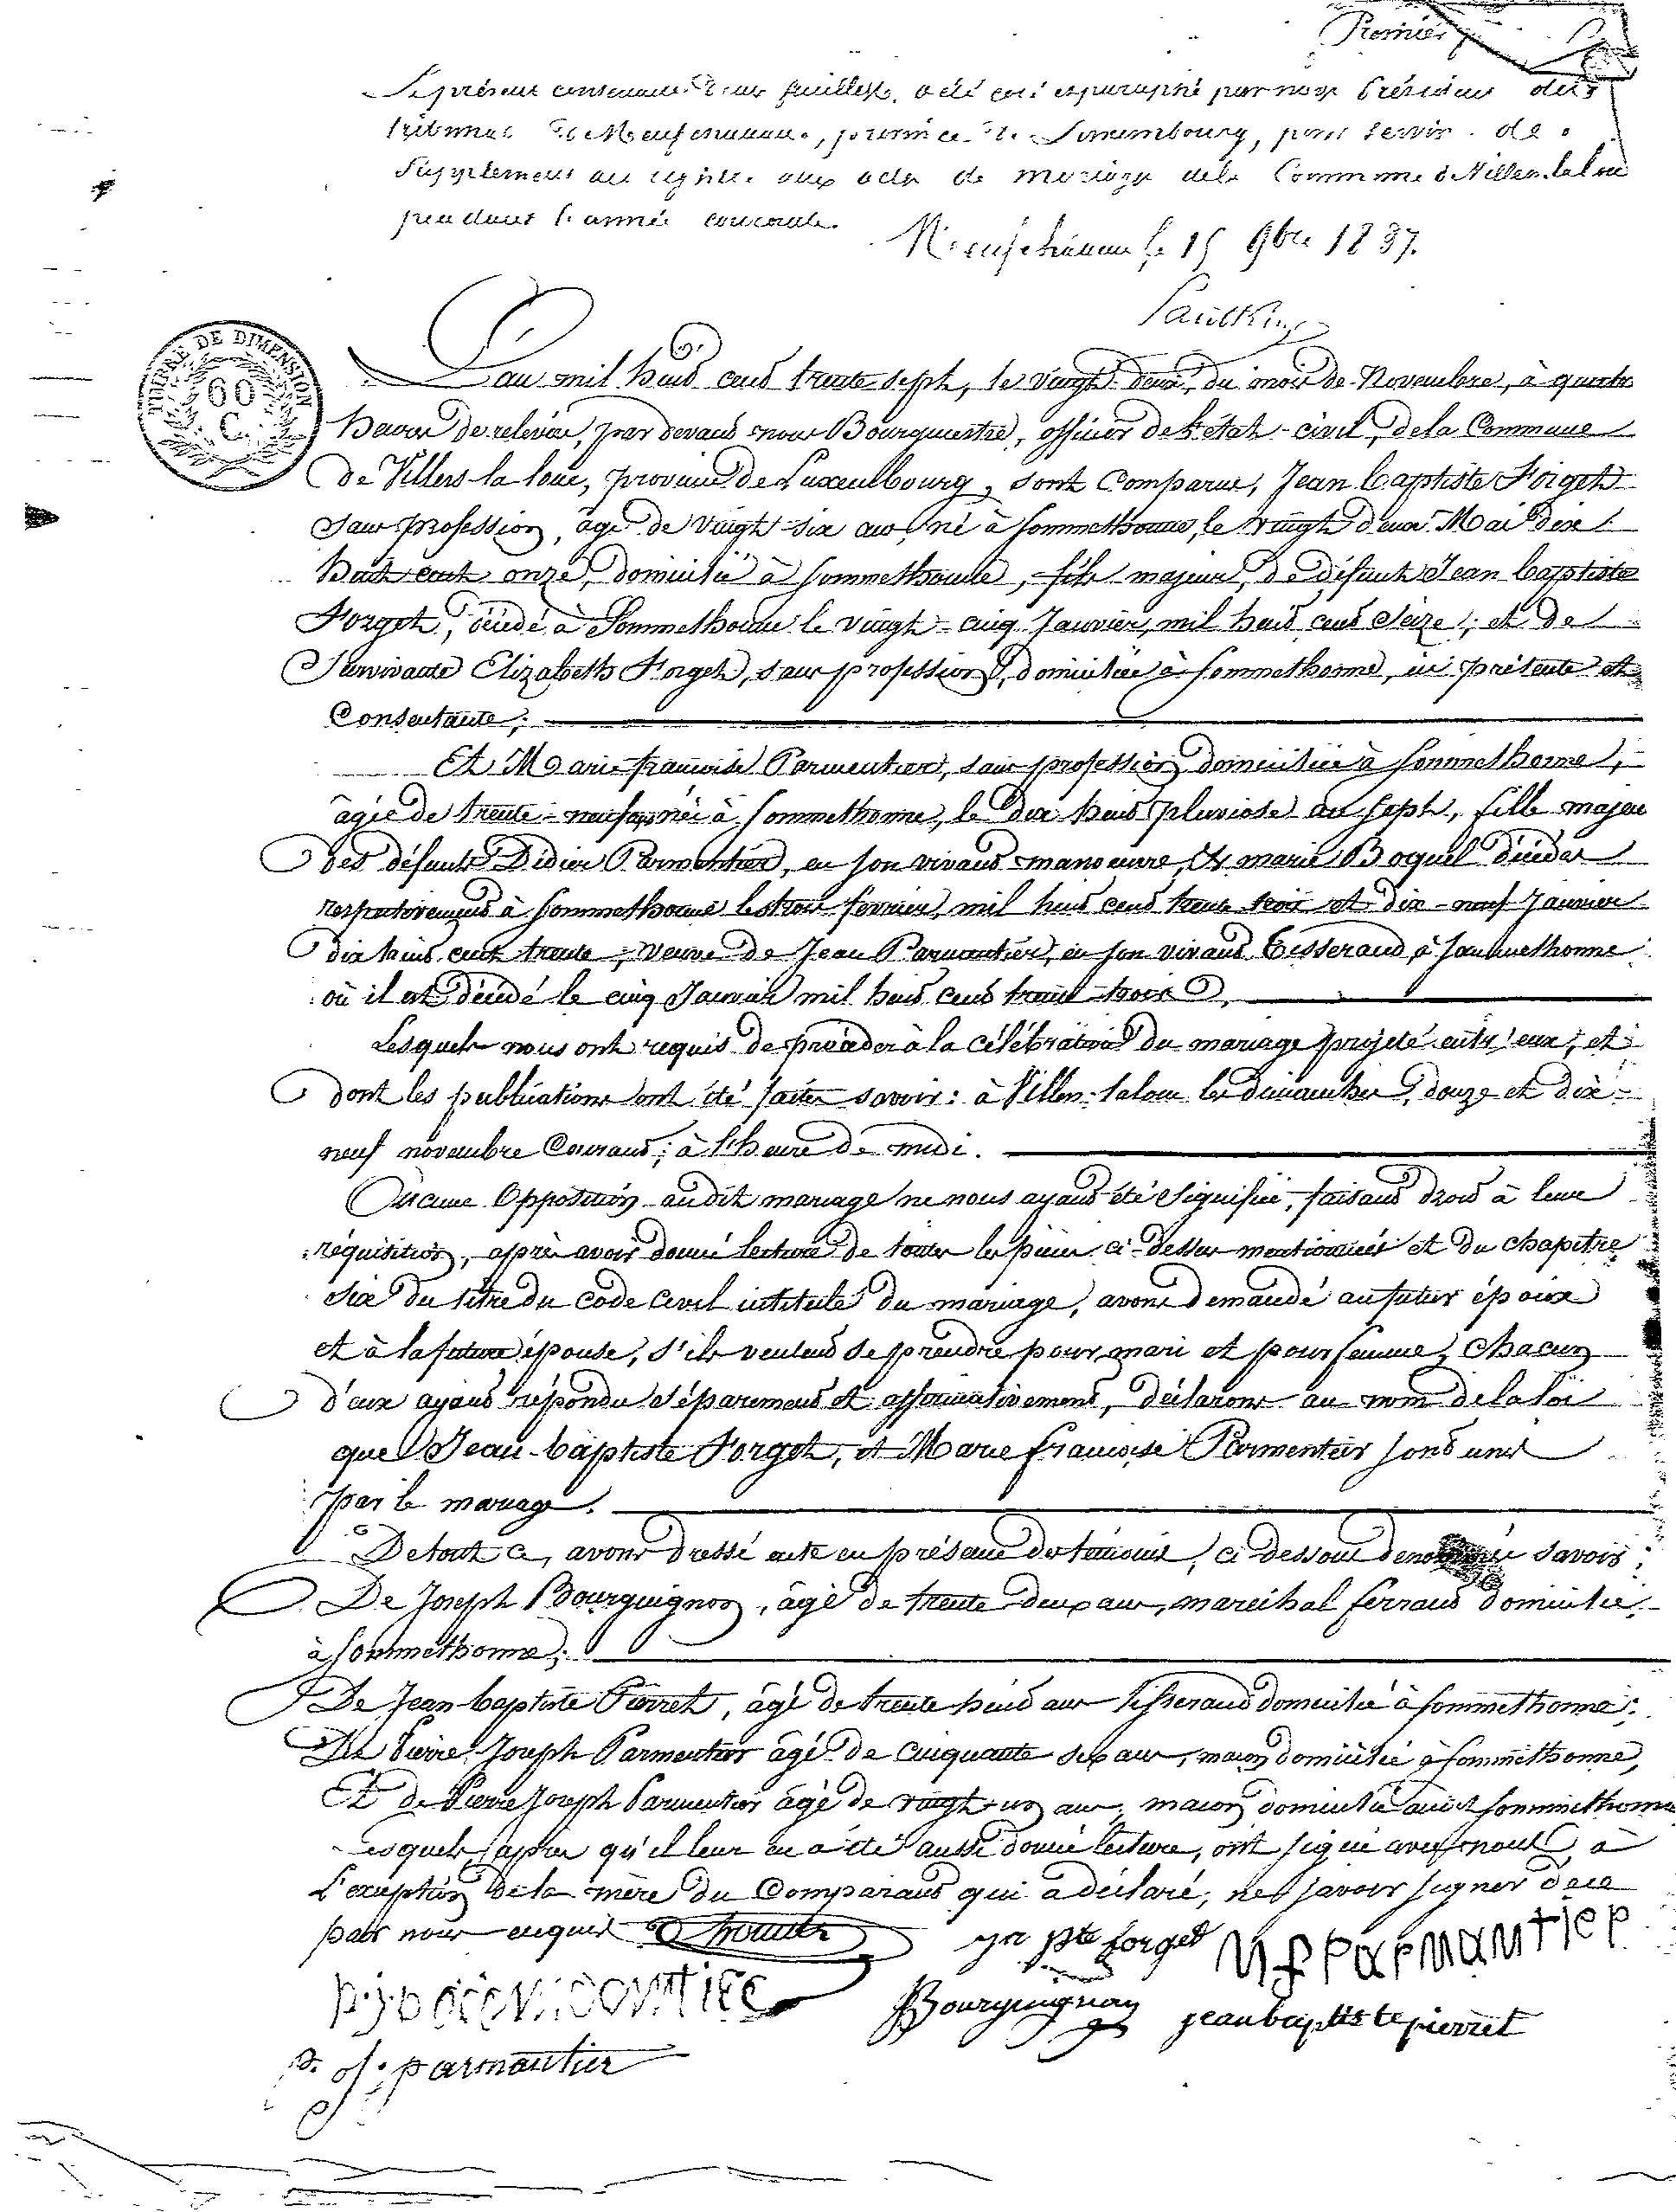 Premier
Le présent contenant deux feuillets, a été coté et paraphé par nous Président du
tribunal de Neufchateau, province de Luxembourg, pour servir de
Supplément au registre aux actes de mariage de la Commune de Villers-la loue
pendant l'année courante.
Neufchateau le 15 9bre 1837.
TIMBRE DE DIMENSION
60
C.
L'an mil huit cent trente sept, le vingt-deux, du mois de Novembre, à quatre
heures de relevée, par devant nous Bourgmestre, officier de l'état-civil, de la Commune
de Villers-la loue, province de Luxembourg, sont Comparus, Jean baptiste Forget
sans profession, âgé de vingt-six ans, né à Sommethonne, le vingt deux Mai dix
huit cent onze, domicilié à Sommethonne, fils majeur, de défunt Jean baptiste
Forget, décédé à Sommethonne le vingt-cinq Janvier, mil huit cent seize; et de
Survivante Elizabeth Forget, sans profession, domiciliée à Sommethonne, ici présente et
Consentante;
Et Marie françoise Parmentier, sans profession domiciliée à Sommethonne,
âgée de trente-neuf ans née à Sommethonne, le dix huit pluviose an sept, fille majeure
des défunts Didier Parmentier, en son vivant manoeuvre, et marie Boquel décédés
respectivement à Sommethonne les trois fevrier, mil huit cent trente trois et dix-neuf Janvier
dix huit cent trente; veuve de Jean Parmentier, en son vivant Tisserand à Sommethonne
où il est décédé le cinq Janvier mil huit cent trente-trois.
Lesquels nous ont requis de procéder à la célébration du mariage projeté entr'eux, et
dont les publications ont été faites savoir: à Villers-laloue les dimanches, douze et dix-
neuf novembre Courant; à l'heure de midi.
Aucune Opposition audit mariage ne nous ayant été signifiée, faisant droit à leur
réquisition, après avoir donné lecture de toutes les pièces ci-dessus mentionnées et du chapitre
six du titre du code Civil intitulé du mariage, avons demandé au futur époux
et à la future épouse, s'ils veulent se prendre pour mari et pour femme, chacun
d'eux ayant répondu séparément et affirmativement, déclarons au nom de la loi
que Jean-baptiste Forget, et Marie françoise Parmentier sont unis
par le mariage.
De tout ce, avons dressé acte en présence des témoins, ci-dessous dénommés savoir:
De Joseph Bourguignon, âgé de trente-deux ans, maréchal ferrand domicilié
à Sommethonne;
De Jean-baptiste Pierret, âgé de trente huit ans Tisserand domicilié à Sommethonne;
De Pierre Joseph Parmentier âgé de Cinquante six ans, maçon domicilié à Sommethonne,
Et de Pierre Joseph Parmentier âgé de vingt-un ans, maçon domicilié audit Sommethonne
Lesquels, après qu'il leur en a été aussi donné lecture, ont signé avec nous, à
L'exception de la mère du Comparant qui a déclaré, ne savoir signer de ce
par nous enquis
jn pte forget
M f PARMANTIER
Bourguignon
jean baptiste pierret
p. j. parmantier